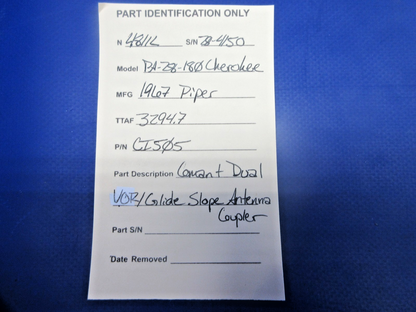 PART IDENTIFICATION ONLY
N 4811L S/N 28-4150
Model PA-28-180 Cherokee
MFG 1967 Piper
TTAF 3294.7
P/N CI505
Part Description Comant Dual
VOR/Glide Slope Antenna
Coupler
Part S/N
Date Removed